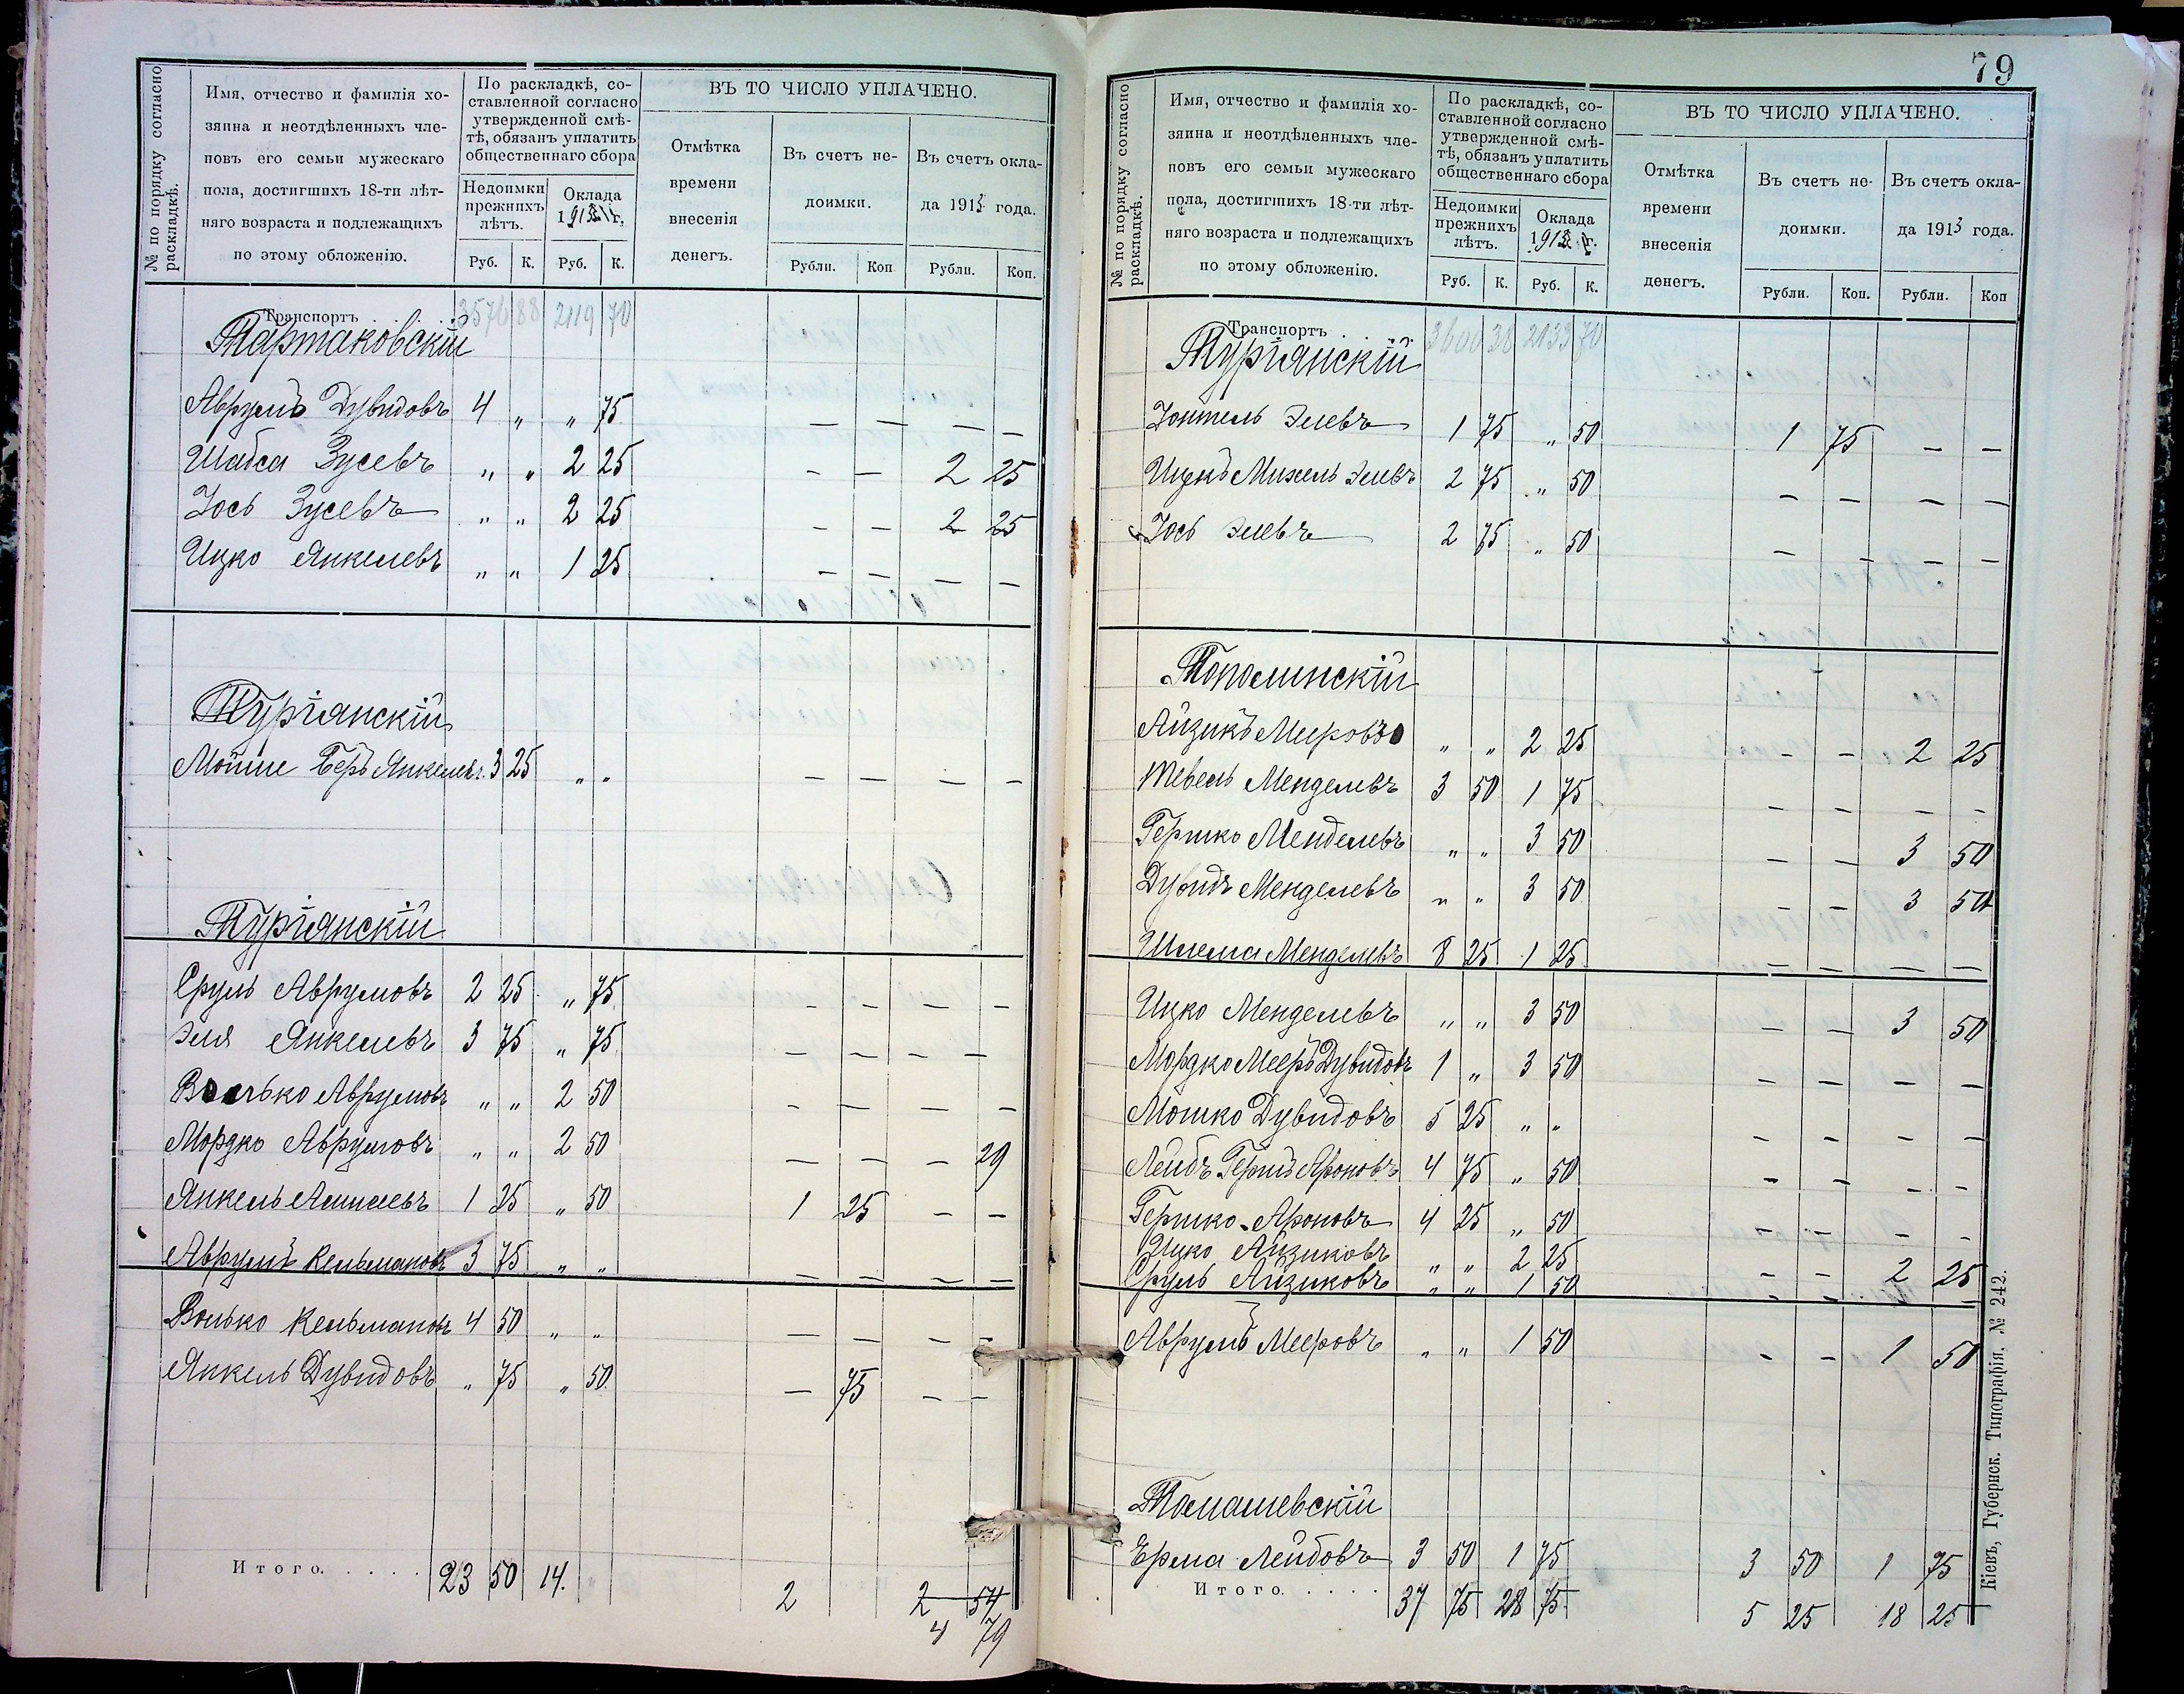 № по порядку согласно раскладкѣ.
Имя, отчество и фамилія хо-
зяина и неотдѣленныхъ чле-
новъ его семьи мужескаго
пола, достигшихъ 18-ти лѣт-
няго возраста и подлежащихъ
по этому обложенію.
По раскладкѣ, со-
ставленной согласно
утвержденной смѣ-
тѣ, обязанъ уплатить
общественнаго сбора
Недоимки
прежнихъ
лѣтъ.
Оклада
191 г.
Руб. К. Руб. К.
ВЪ ТО ЧИСЛО УПЛАЧЕНО.
Отмѣтка
времени
внесенія
денегъ.
Въ счетъ не-
доимки.
Рубли. Коп
Въ счетъ окла-
да 1913 года.
Рубли. Коп.
Транспортъ . . . 3576 88 2119 70
Тартаковскій
Аврумъ Дувидовъ 4 „ „ 75 — — — —
Шабса Зусевъ „ „ 2 25 — — 2 25
Іось Зусевъ „ „ 2 25 — — 2 25
Ицко Янкелевъ „ „ 1 25 — — — —
Туріянскій
Мойше Беръ Янкелев. 3 25 „ „ — — — —
Туріянскій
Сруль Аврумовъ 2 25 „ 75 — — — —
Эля Янкелевъ 3 75 „ 75 — — — —
Волько Аврумовъ „ „ 2 50 — — — —
Мордко Аврумовъ „ „ 2 50 — — — 29
Янкель 1 25 „ 50 1 25 — —
Аврумъ Кельмановъ 3 75 „ „ — — — —
Волько Кельмановъ 4 50 „ „ — — — —
Янкель Дувидовъ „ 75 „ 50 — 75 — —
Итого. . . . . 23 50 14. 2 2 54
4 79
79
№ по порядку согласно раскладкѣ.
Имя, отчество и фамилія хо-
зяина и неотдѣленныхъ чле-
новъ его семьи мужескаго
пола, достигшихъ 18-ти лѣт-
няго возраста и подлежащихъ
по этому обложенію.
По раскладкѣ, со-
ставленной согласно
утвержденной смѣ-
тѣ, обязанъ уплатить
общественнаго сбора
Недоимки
прежнихъ
лѣтъ.
Оклада
191 г.
Руб. К. Руб. К.
ВЪ ТО ЧИСЛО УПЛАЧЕНО.
Отмѣтка
времени
внесенія
денегъ.
Въ счетъ не-
доимки.
Рубли. Коп.
Въ счетъ окла-
да 1913 года.
Рубли. Коп
Транспортъ . . . 3600 38 2133 70
Туріянскій
Іонтель Элевъ 1 75 „ 50 1 75 — —
Ицкъ Михель Элевъ 2 75 „ 50 — — — —
Іось Элевъ 2 75 „ 50 — — — —
Тополинскій
Айзикъ Мееровъ „ „ 2 25 — — 2 25
Тевель Менделевъ 3 50 1 75 — — — —
Гершко Менделевъ „ „ 3 50 — — 3 50
Дувидъ Менделевъ „ „ 3 50 — — 3 50
Шлема Менделевъ 8 25 1 25 — — — —
Ицко Менделевъ „ „ 3 50 — — 3 50
Мордко Мееръ Дувидовъ 1 „ 3 50 — — — —
Мошко Дувидовъ 5 25 „ „ — — — —
Лейбъ Гершъ Ароновъ 4 75 „ 50 — — — —
Гершко Ароновъ 4 25 „ 50 — — — —
Ицко Айзиковъ „ „ 2 25 — — 2 25
Сруль Айзиковъ „ „ 1 50 — — — —
Аврумъ Мееровъ „ „ 1 50 — — 1 50
Томашевскій
Ерма Лейбовъ 3 50 1 75 3 50 1 75
Итого. . . . . 37 75 28 75 5 25 18 25
Кіевъ, Губернск. Типографія, № 242.